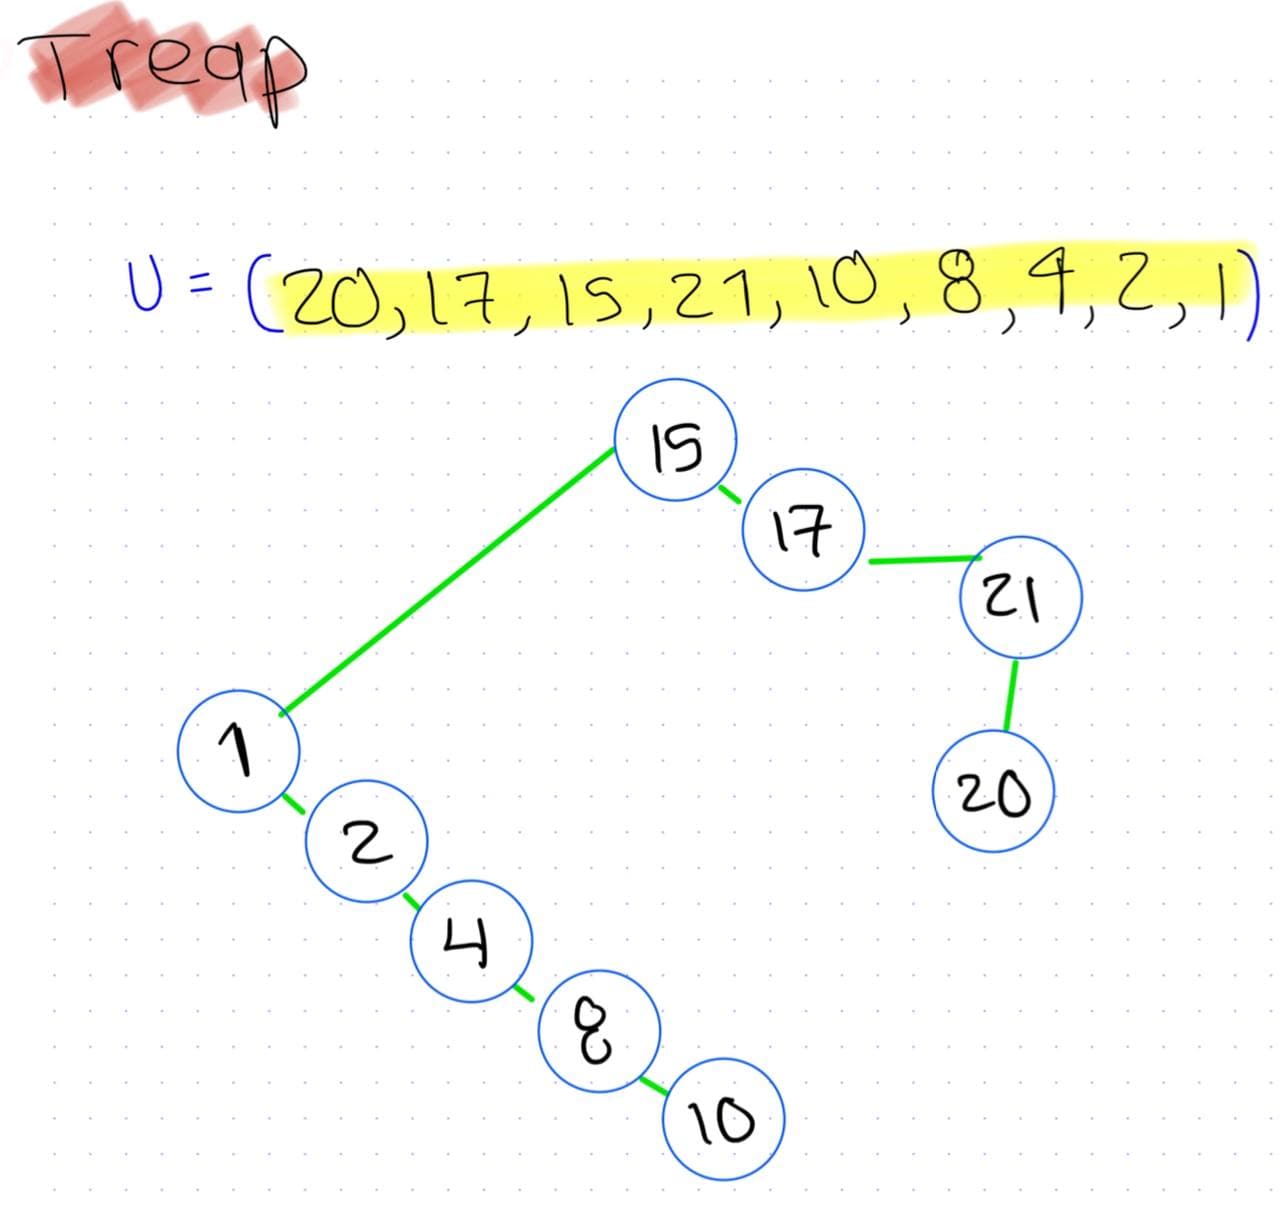 Treap
U = (20, 17, 15, 21, 10, 8, 4, 2, 1)
15
17
21
1
20
2
4
8
10